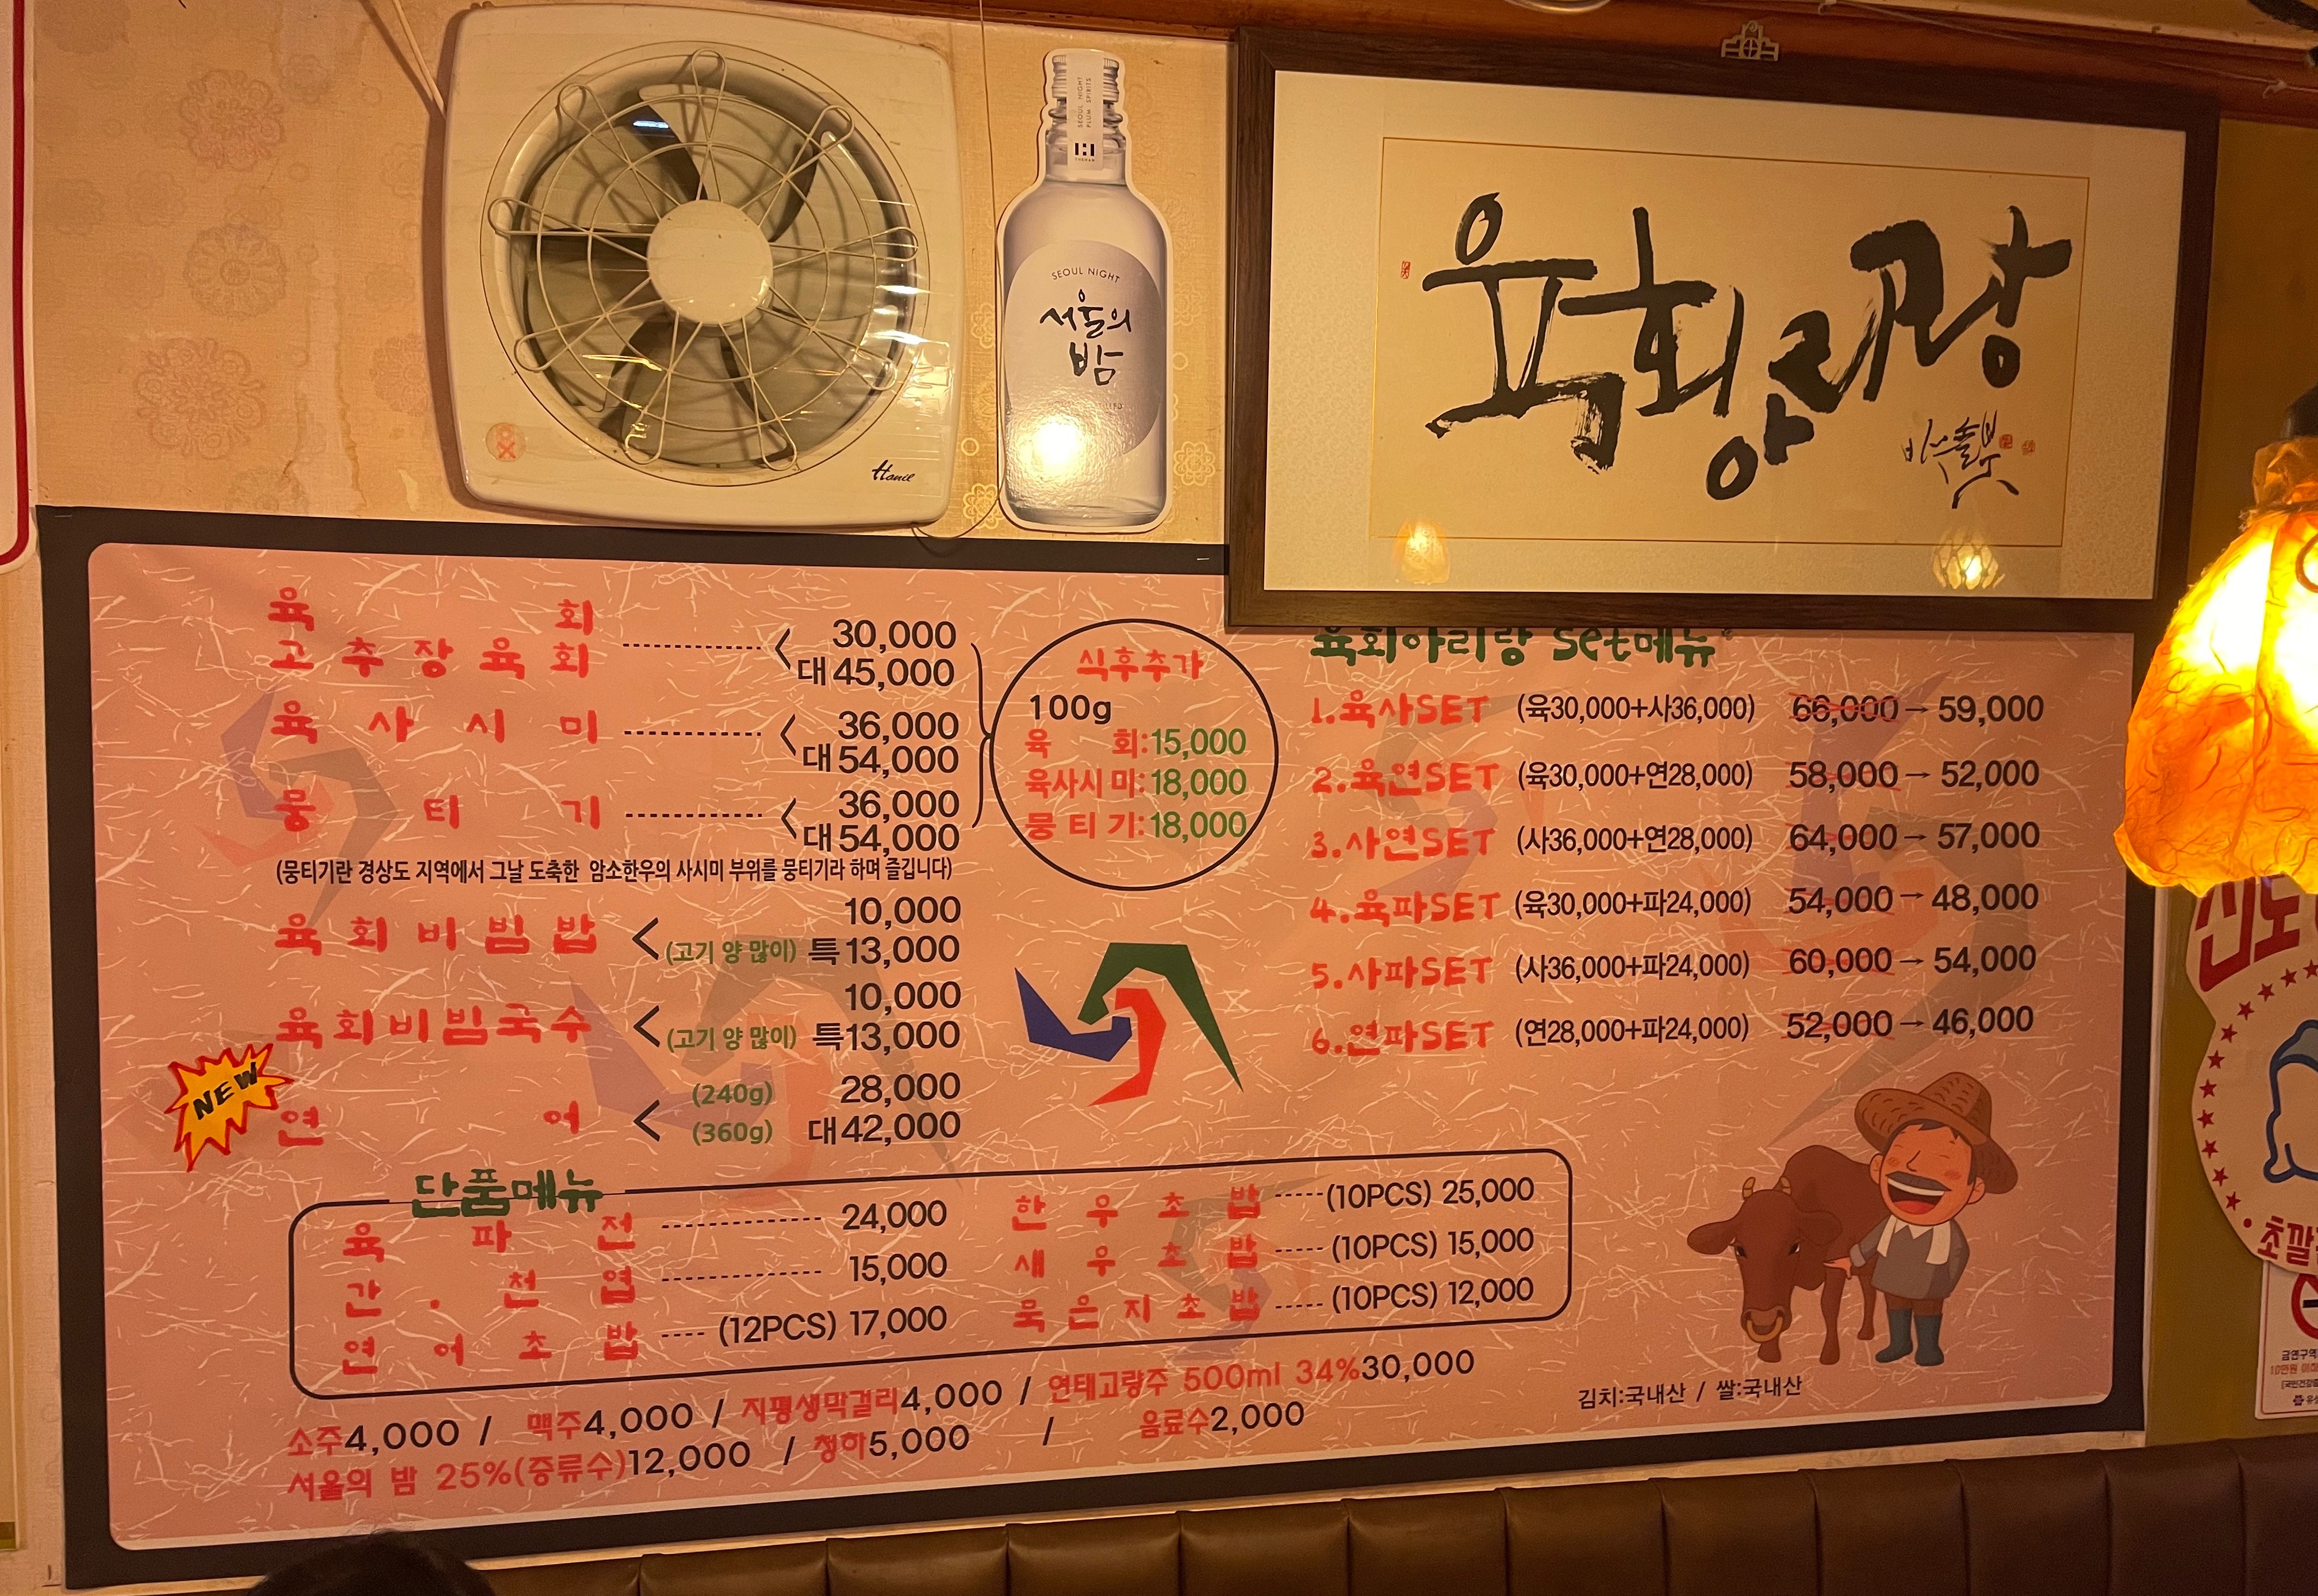 SEOUL NIGHT
PLUM SPIRITS
SEOUL NIGHT
서울의
밤
Hanil
육회아리랑
육 회
고추장육회
30,000
대 45,000
육 사 시 미
36,000
대 54,000
뭉 티 기
36,000
대 54,000
(뭉티기란 경상도 지역에서 그날 도축한 암소한우의 사시미 부위를 뭉티기라 하며 즐깁니다)
식후추가
100g
육 회:15,000
육사시미:18,000
뭉티기:18,000
육회비빔밥 10,000
(고기 양 많이) 특 13,000
육회비빔국수 10,000
(고기 양 많이) 특 13,000
NEW
연 어
(240g) 28,000
(360g) 대 42,000
육회아리랑 Set메뉴
1.육사SET (육30,000+사36,000) 66,000→59,000
2.육연SET (육30,000+연28,000) 58,000→52,000
3.사연SET (사36,000+연28,000) 64,000→57,000
4.육파SET (육30,000+파24,000) 54,000→48,000
5.사파SET (사36,000+파24,000) 60,000→54,000
6.연파SET (연28,000+파24,000) 52,000→46,000
단품메뉴
육 파 전 24,000
간 . 천 엽 15,000
연 어 초 밥 (12PCS) 17,000
한 우 초 밥 (10PCS) 25,000
새 우 초 밥 (10PCS) 15,000
묵은지초밥 (10PCS) 12,000
소주4,000 / 맥주4,000 / 지평생막걸리4,000 / 연태고량주 500ml 34%30,000
서울의 밤 25%(증류수)12,000 / 청하5,000 / 음료수2,000
김치:국내산 / 쌀:국내산
금연구역